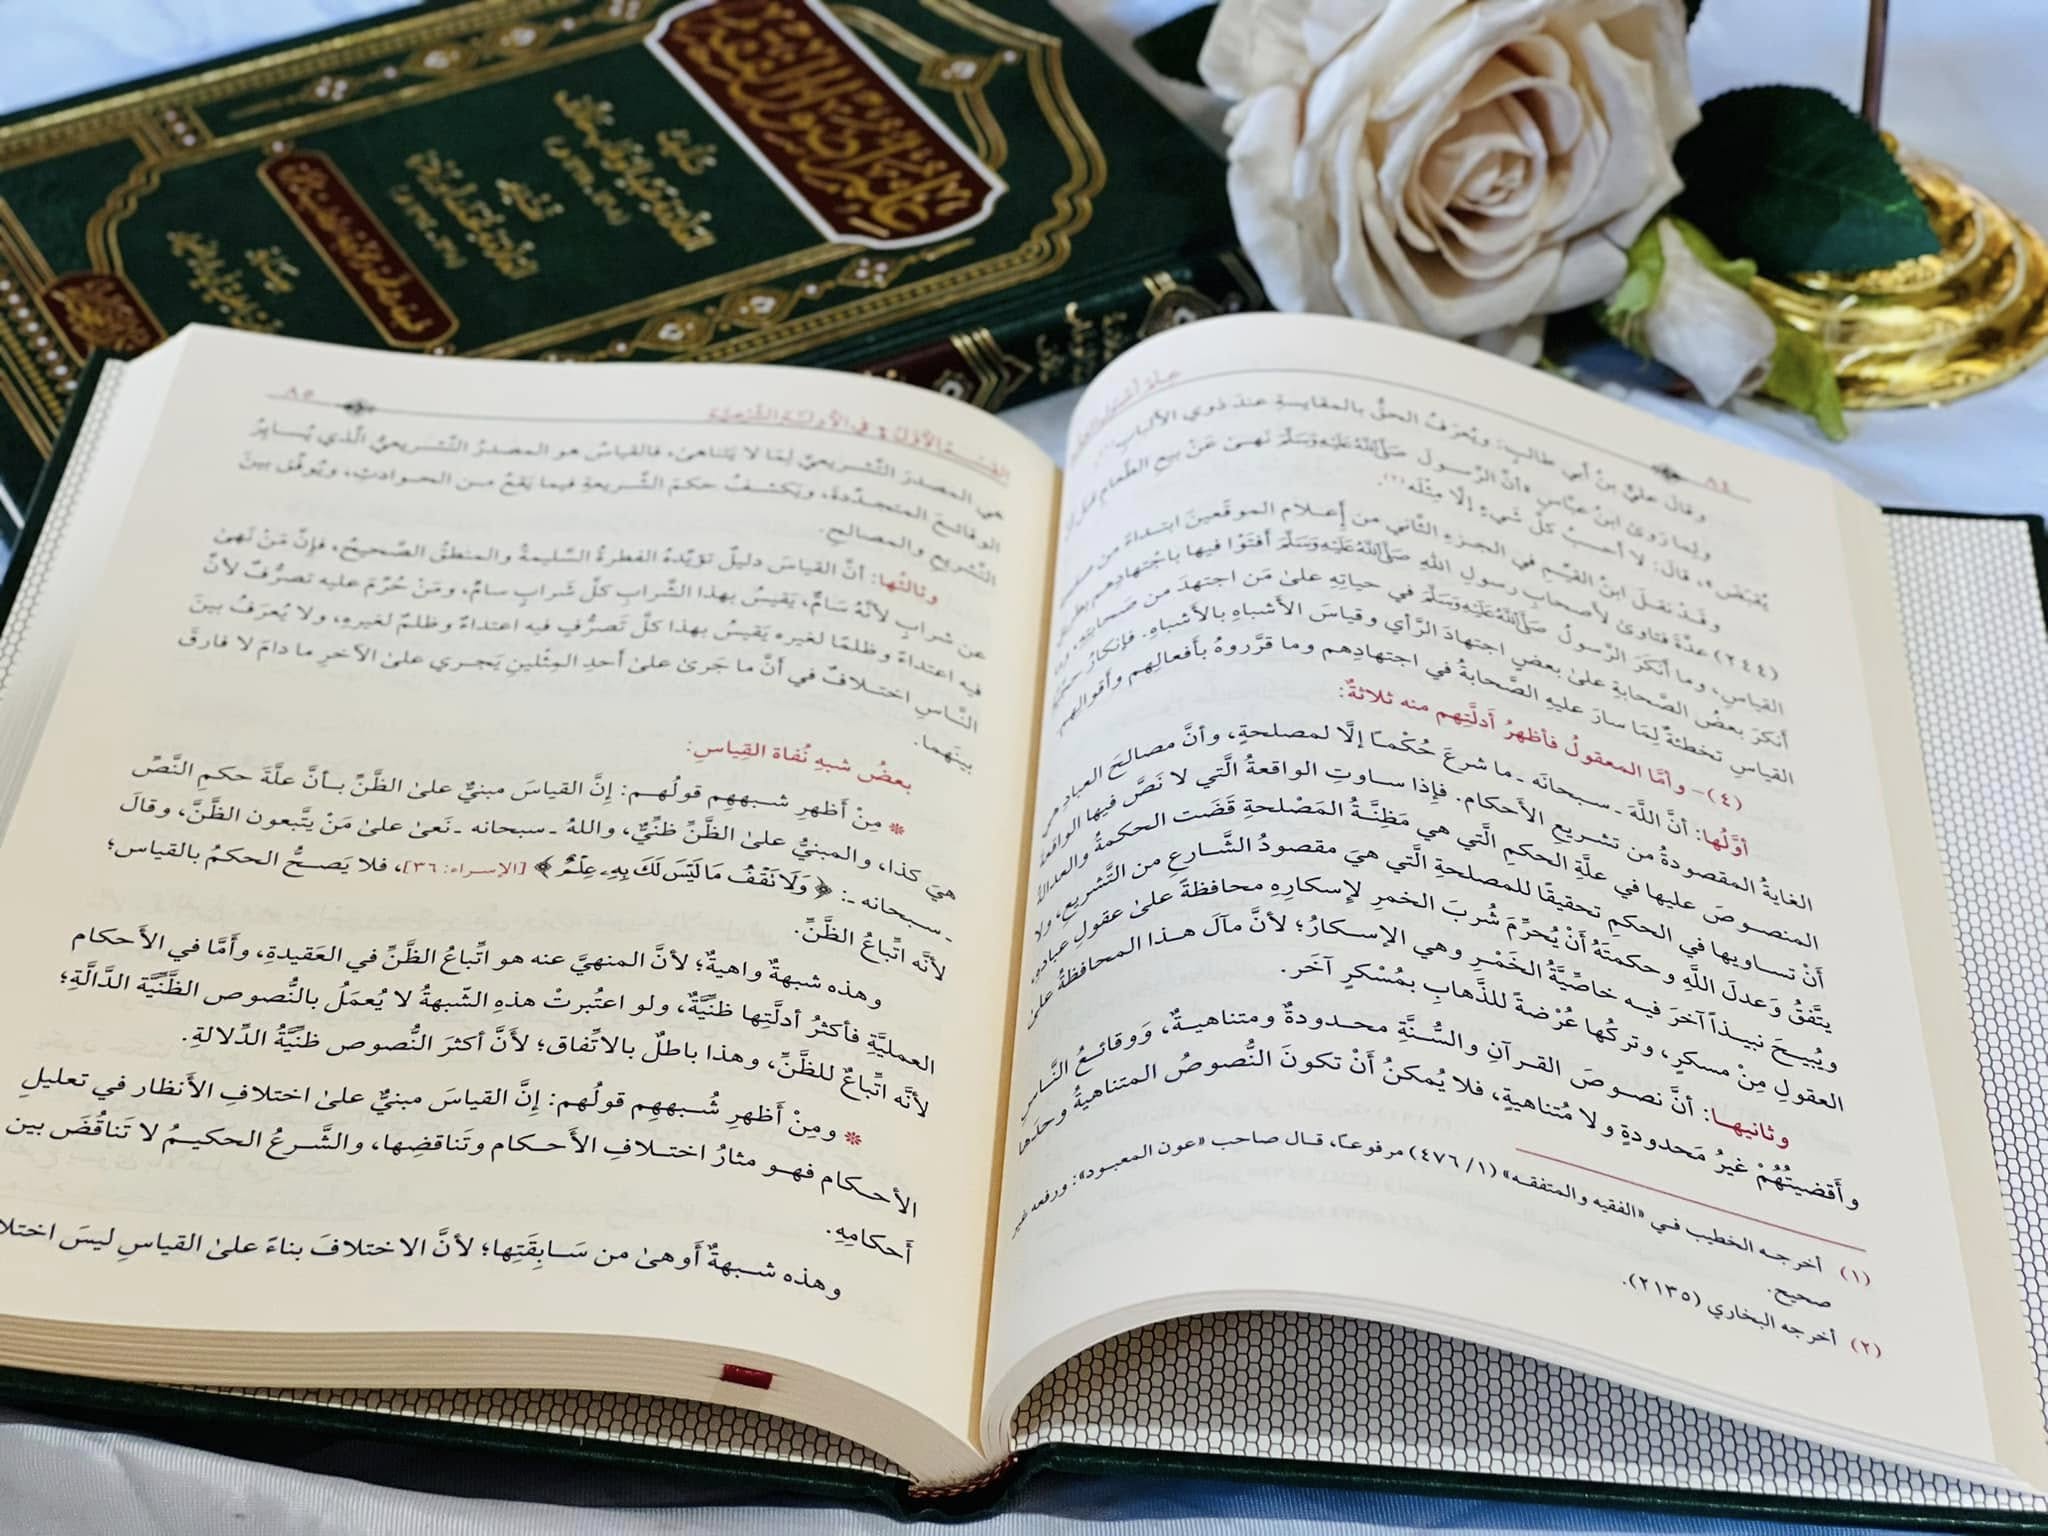 علم أصول الفقه
٨٤
علم أصول الفقه
وقال عليُّ بنُ أبي طالبٍ: ويُعرَفُ الحقُّ بالمقايسةِ عندَ ذوي الألبابِ
ولِما رَوىٰ ابنُ عبَّاسٍ «أنَّ الرَّسولَ صَلَّى اللَّهُ عَلَيْهِ وَسَلَّمَ نَهىٰ عَنْ بيعِ الطَّعامِ قبل أن
يُقبَضَ»، قالَ: لا أحسبُ كلَّ شيءٍ إلَّا مِثْلَه(٢).
وقَدْ نقلَ ابنُ القيِّمِ في الجزءِ الثَّاني من إعلامِ الموقِّعينَ ابتداءً من صفحةِ
(٢٤٤) عدَّةَ فتاوىٰ لأصحابِ رسولِ اللهِ صَلَّى اللَّهُ عَلَيْهِ وَسَلَّمَ أفتَوْا فيها باجتهادِهم بطريقِ
القياسِ، وما أنكرَ الرَّسولُ صَلَّى اللَّهُ عَلَيْهِ وَسَلَّمَ في حياتِهِ علىٰ مَن اجتهدَ من صَحابتِهِ،
أنكرَ بعضُ الصَّحابةِ علىٰ بعضٍ اجتهادَ الرَّأيِ وقياسَ الأَشباهِ بالأشباهِ. فإنكارُ
القياسِ تخطئةٌ لِمَا سارَ عليهِ الصَّحابةُ في اجتهادِهم وما قرَّروهُ بأفعالِهم وأقوالِهم.
(٤) - وأمَّا المعقولُ فأظهرُ أدلَّتِهم منه ثلاثةٌ:
أوَّلُها: أنَّ اللَّهَ - سبحانَه - ما شرعَ حُكْمًا إلَّا لمصلحةٍ، وأنَّ مصالحَ العبادِ هي
الغايةُ المقصودةُ من تشريعِ الأَحكام. فإِذا ساوتِ الواقعةُ الَّتي لا نَصَّ فيها الواقعةَ
المنصوصَ عليها في علَّةِ الحكمِ الَّتي هي مَظِنَّةُ المَصْلحةِ قَضَت الحكمةُ والعدالةُ
أنْ تساويها في الحكمِ تحقيقًا للمصلحةِ الَّتي هيَ مقصودُ الشَّارعِ من التَّشريعِ، ولا
يتَّفقُ وَعدلَ اللَّهِ وحكمتَهُ أنْ يُحرِّمَ شُربَ الخمرِ لإِسكارِهِ محافظةً علىٰ عقولِ عبادِهِ
ويُبيحَ نبيذاً آخرَ فيه خاصِّيَّةُ الخَمْرِ وهي الإسكارُ؛ لأنَّ مآلَ هذا المحافظةُ علىٰ
العقولِ مِنْ مسكرٍ، وتركُها عُرْضةً للذَّهابِ بمُسْكرٍ آخَر.
وثانيها: أنَّ نصوصَ القرآنِ والسُّنَّةِ محدودةٌ ومتناهيةٌ، وَوقائعُ النَّاسِ
وأَقضيتُهُمْ غيرُ مَحدودةٍ ولا مُتناهيةٍ، فلا يُمكنُ أنْ تكونَ النُّصوصُ المتناهيةُ وحدَها
(١) أخرجه الخطيب في «الفقيه والمتفقه» (١/ ٤٧٦) مرفوعًا، قال صاحب «عون المعبود»: ورفعه غير
صحيح.
(٢) أخرجه البخاري (٢١٣٥).
القِسمُ الأوَّلُ: في الأدلَّةِ الشَّرعيَّةِ
٨٥
هي المصدرَ التَّشريعيَّ لِمَا لا يَتناهىٰ، فالقياسُ هو المصدرُ التَّشريعيُّ الَّذي يُسايِرُ
الوقائعَ المتجدِّدةَ، ويَكشفُ حكمَ الشَّريعةِ فيما يَقعُ من الحوادثِ، ويُوفِّق بينَ
التَّشريعِ والمصالحِ.
وثالثُها: أنَّ القياسَ دليلٌ تؤيِّدهُ الفطرةُ السَّليمةُ والمنطقُ الصَّحيحُ، فإنَّ مَنْ نَهىٰ
عن شرابٍ لأنَّهُ سَامٌّ، يَقيسُ بهذا الشَّرابِ كلَّ شَرابٍ سامٍّ، ومَنْ حُرِّمَ عليه تصرُّفٌ لأنَّ
فيه اعتداءً وظلمًا لغيره يَقيسُ بهذا كلَّ تَصرُّفٍ فيه اعتداءٌ وظلمٌ لغيرِهِ، ولا يُعرَفُ بينَ
النَّاسِ اختلافٌ في أنَّ ما جَرىٰ علىٰ أَحدِ المِثْلينِ يَجري علىٰ الآخرِ ما دامَ لا فارقَ
بينَهما.
بعضُ شبهِ نُفاة القِياسِ:
* مِنْ أَظهرِ شبههِم قولُهم: إنَّ القياسَ مبنيٌّ علىٰ الظَّنِّ بأنَّ علَّةَ حكمِ النَّصِّ
هيَ كذا، والمبنيُّ علىٰ الظَّنِّ ظنِّيٌّ، واللهُ - سبحانه - نَعىٰ علىٰ مَنْ يتَّبعون الظَّنَّ، وقالَ
- سبحانه -: ﴿وَلَا تَقْفُ مَا لَيْسَ لَكَ بِهِۦ عِلْمٌ﴾ [الإسراء: ٣٦]، فلا يَصحُّ الحكمُ بالقياس؛
لأنَّه اتِّباعُ الظَّنِّ.
وهذه شبهةٌ واهيةٌ؛ لأنَّ المنهيَّ عنه هو اتِّباعُ الظَّنِّ في العَقيدةِ، وأَمَّا في الأَحكام
العمليَّةِ فأكثرُ أدلَّتِها ظنِّيَّةٌ، ولو اعتُبرتْ هذهِ الشّبهةُ لا يُعمَلُ بالنُّصوص الظَّنِّيَّة الدَّالَّةِ؛
لأنَّه اتِّباعٌ للظَّنِّ، وهذا باطلٌ بالاتِّفاق؛ لأنَّ أكثرَ النُّصوص ظنِّيَّةُ الدِّلالةِ.
* ومِنْ أظهرِ شُبههِم قولُهم: إنَّ القياسَ مبنيٌّ علىٰ اختلافِ الأَنظار في تعليلِ
الأحكام فهو مثارُ اختلافِ الأَحكام وتَناقضِها، والشَّرعُ الحكيمُ لا تَناقُضَ بين
أَحكامِهِ.
وهذه شبهةٌ أَوهىٰ من سَابِقَتِها؛ لأنَّ الاختلافَ بناءً علىٰ القياسِ ليسَ